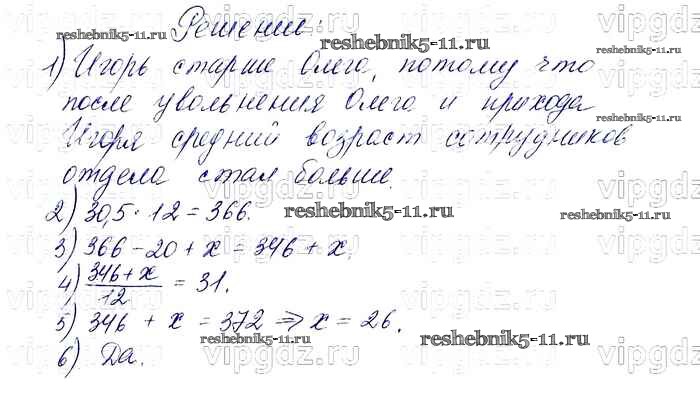 Решение:
1) Игорь старше Олега, потому что
после увольнения Олега и прихода
Игоря средний возраст сотрудников
отдела стал больше.
2) 30,5 · 12 = 366.
3) 366 - 20 + x = 346 + x.
4) (346 + x)/12 = 31.
5) 346 + x = 372 => x = 26.
6) Да.
reshebnik5-11.ru
reshebnik5-11.ru
reshebnik5-11.ru
reshebnik5-11.ru
reshebnik5-11.ru
reshebnik5-11.ru
vipgdz.ru
vipgdz.ru
vipgdz.ru
vipgdz.ru
vipgdz.ru
vipgdz.ru